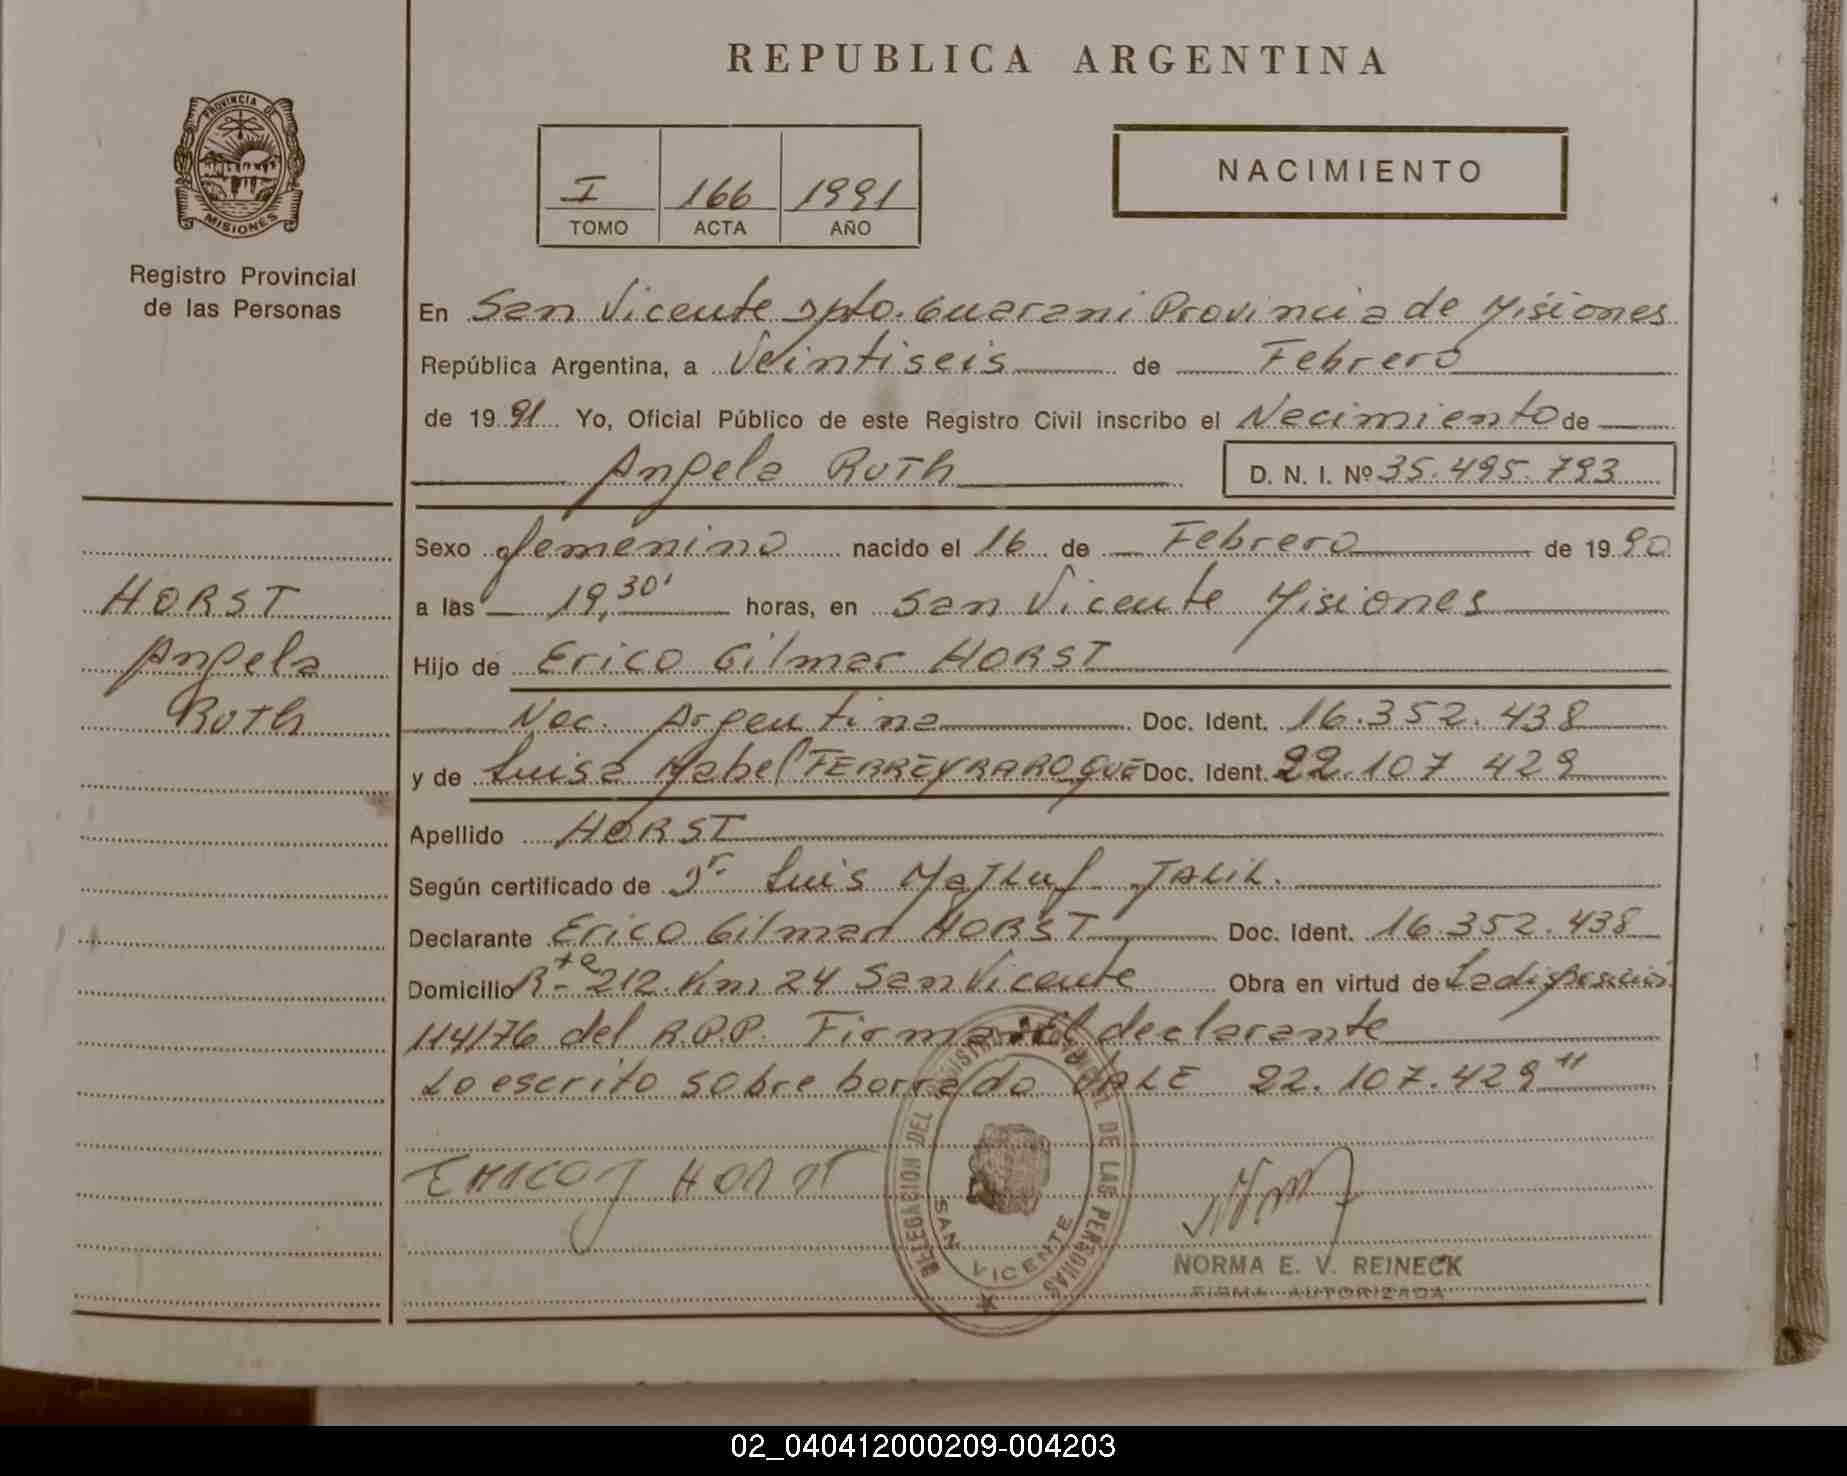 REPUBLICA ARGENTINA
PROVINCIA DE
MISIONES
Registro Provincial
de las Personas
I 166 1991
TOMO ACTA AÑO
NACIMIENTO
En San Vicente Dpto. Guarani Provincia de Misiones
República Argentina, a Veintiseis de Febrero
de 1991 Yo, Oficial Público de este Registro Civil inscribo el Nacimiento de
Angela Ruth D. N. I. Nº 35.495.793
Sexo femenino nacido el 16 de Febrero de 1990
a las 19,30' horas, en San Vicente Misiones
Hijo de Erico Gilmar HORST
Nac. Argentina Doc. Ident. 16.352.438
y de Luisa Mabel FERREYRAROQUE Doc. Ident. 22.107 429
Apellido HORST
Según certificado de Dr Luis Majluf JALIL.
Declarante Erico Gilmar HORST Doc. Ident. 16.352.438
Domicilio Rta 212 Km 24 San Vicente Obra en virtud de La disposición
114/76 del R.P.P. Firma el declarante
Lo escrito sobre borrado VALE 22.107.429"
HORST
Angela
Ruth
HORST
DELEGACION DEL REGISTRO PROVINCIAL DE LAS PERSONAS
SAN VICENTE
NORMA E. V. REINECK
FIRMA AUTORIZADA
02_040412000209-004203